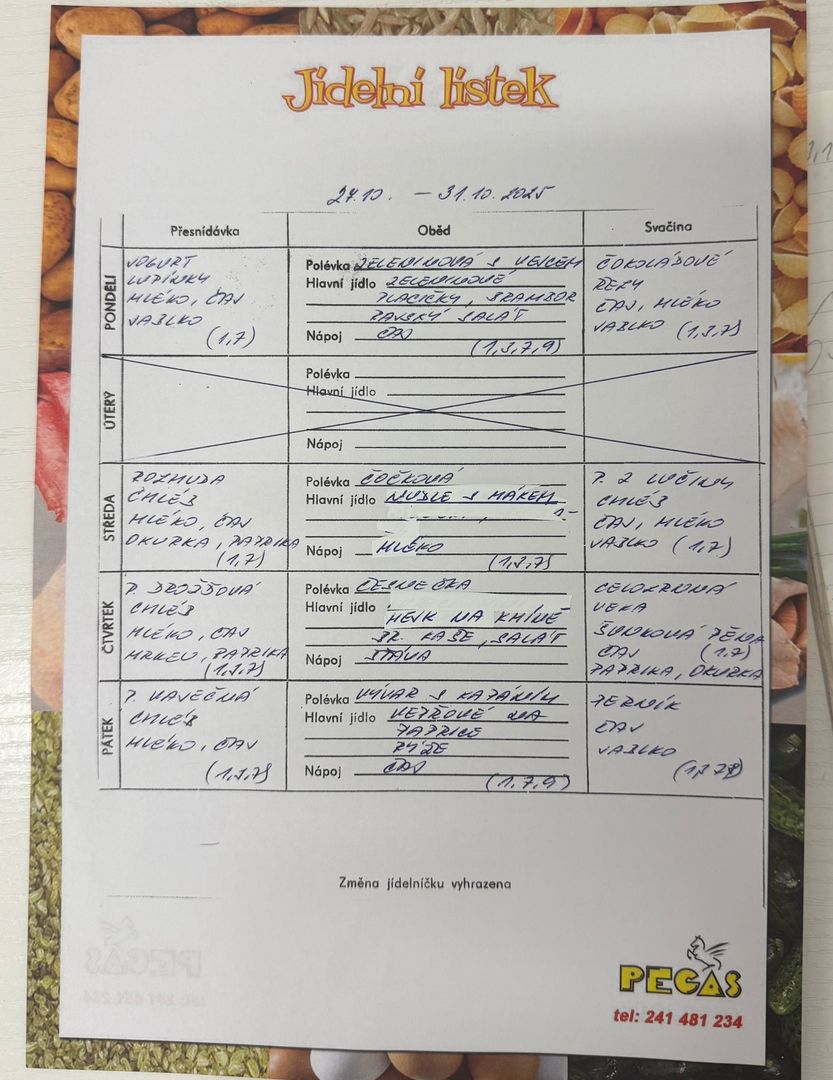 Jídelní lístek
27.10. – 31.10. 2025
Přesnídávka
Oběd
Svačina
PONDĚLÍ
JOGURT
LUPÍNKY
MLÉKO, ČAJ
JABLKO
(1,7)
Polévka ZELENINOVÁ S VEJCEM
Hlavní jídlo ZELENINOVÉ
PLACIČKY, BRAMBOR
RAVSKÝ SALÁT
Nápoj ČAJ
(1,3,7,9)
ČOKOLÁDOVÉ
ŘEZY
ČAJ, MLÉKO
JABLKO (1,3,7)
ÚTERÝ
Polévka
Hlavní jídlo
Nápoj
STŘEDA
POZHUDA
CHLÉB
MLÉKO, ČAJ
OKURKA, PAPRIKA
(1,7)
Polévka ČOČKOVÁ
Hlavní jídlo NUDLE S MÁKEM
Nápoj MLÉKO
(1,3,7)
P. Z LUČINY
CHLÉB
ČAJ, MLÉKO
JABLKO (1,7)
ČTVRTEK
P. DROŽĎOVÁ
CHLÉB
MLÉKO, ČAJ
MRKEV, PAPRIKA
(1,3,7)
Polévka ČESNEČKA
Hlavní jídlo
HEJK NA KMÍNĚ
BR. KAŠE, SALÁT
Nápoj ŠŤÁVA
CELOZRNNÁ
VEKA
ŠUNKOVÁ PĚNA
ČAJ (1,7)
PAPRIKA, OKURKA
PÁTEK
P. VAJEČNÁ
CHLÉB
MLÉKO, ČAJ
(1,3,7)
Polévka VÝVAR S KAPÁNÍM
Hlavní jídlo VEPŘOVÉ NA
PAPRICE
RÝŽE
Nápoj ČAJ
(1,7,9)
PERNÍK
ČAJ
JABLKO
Změna jídelníčku vyhrazena
PEGAS
tel: 241 481 234